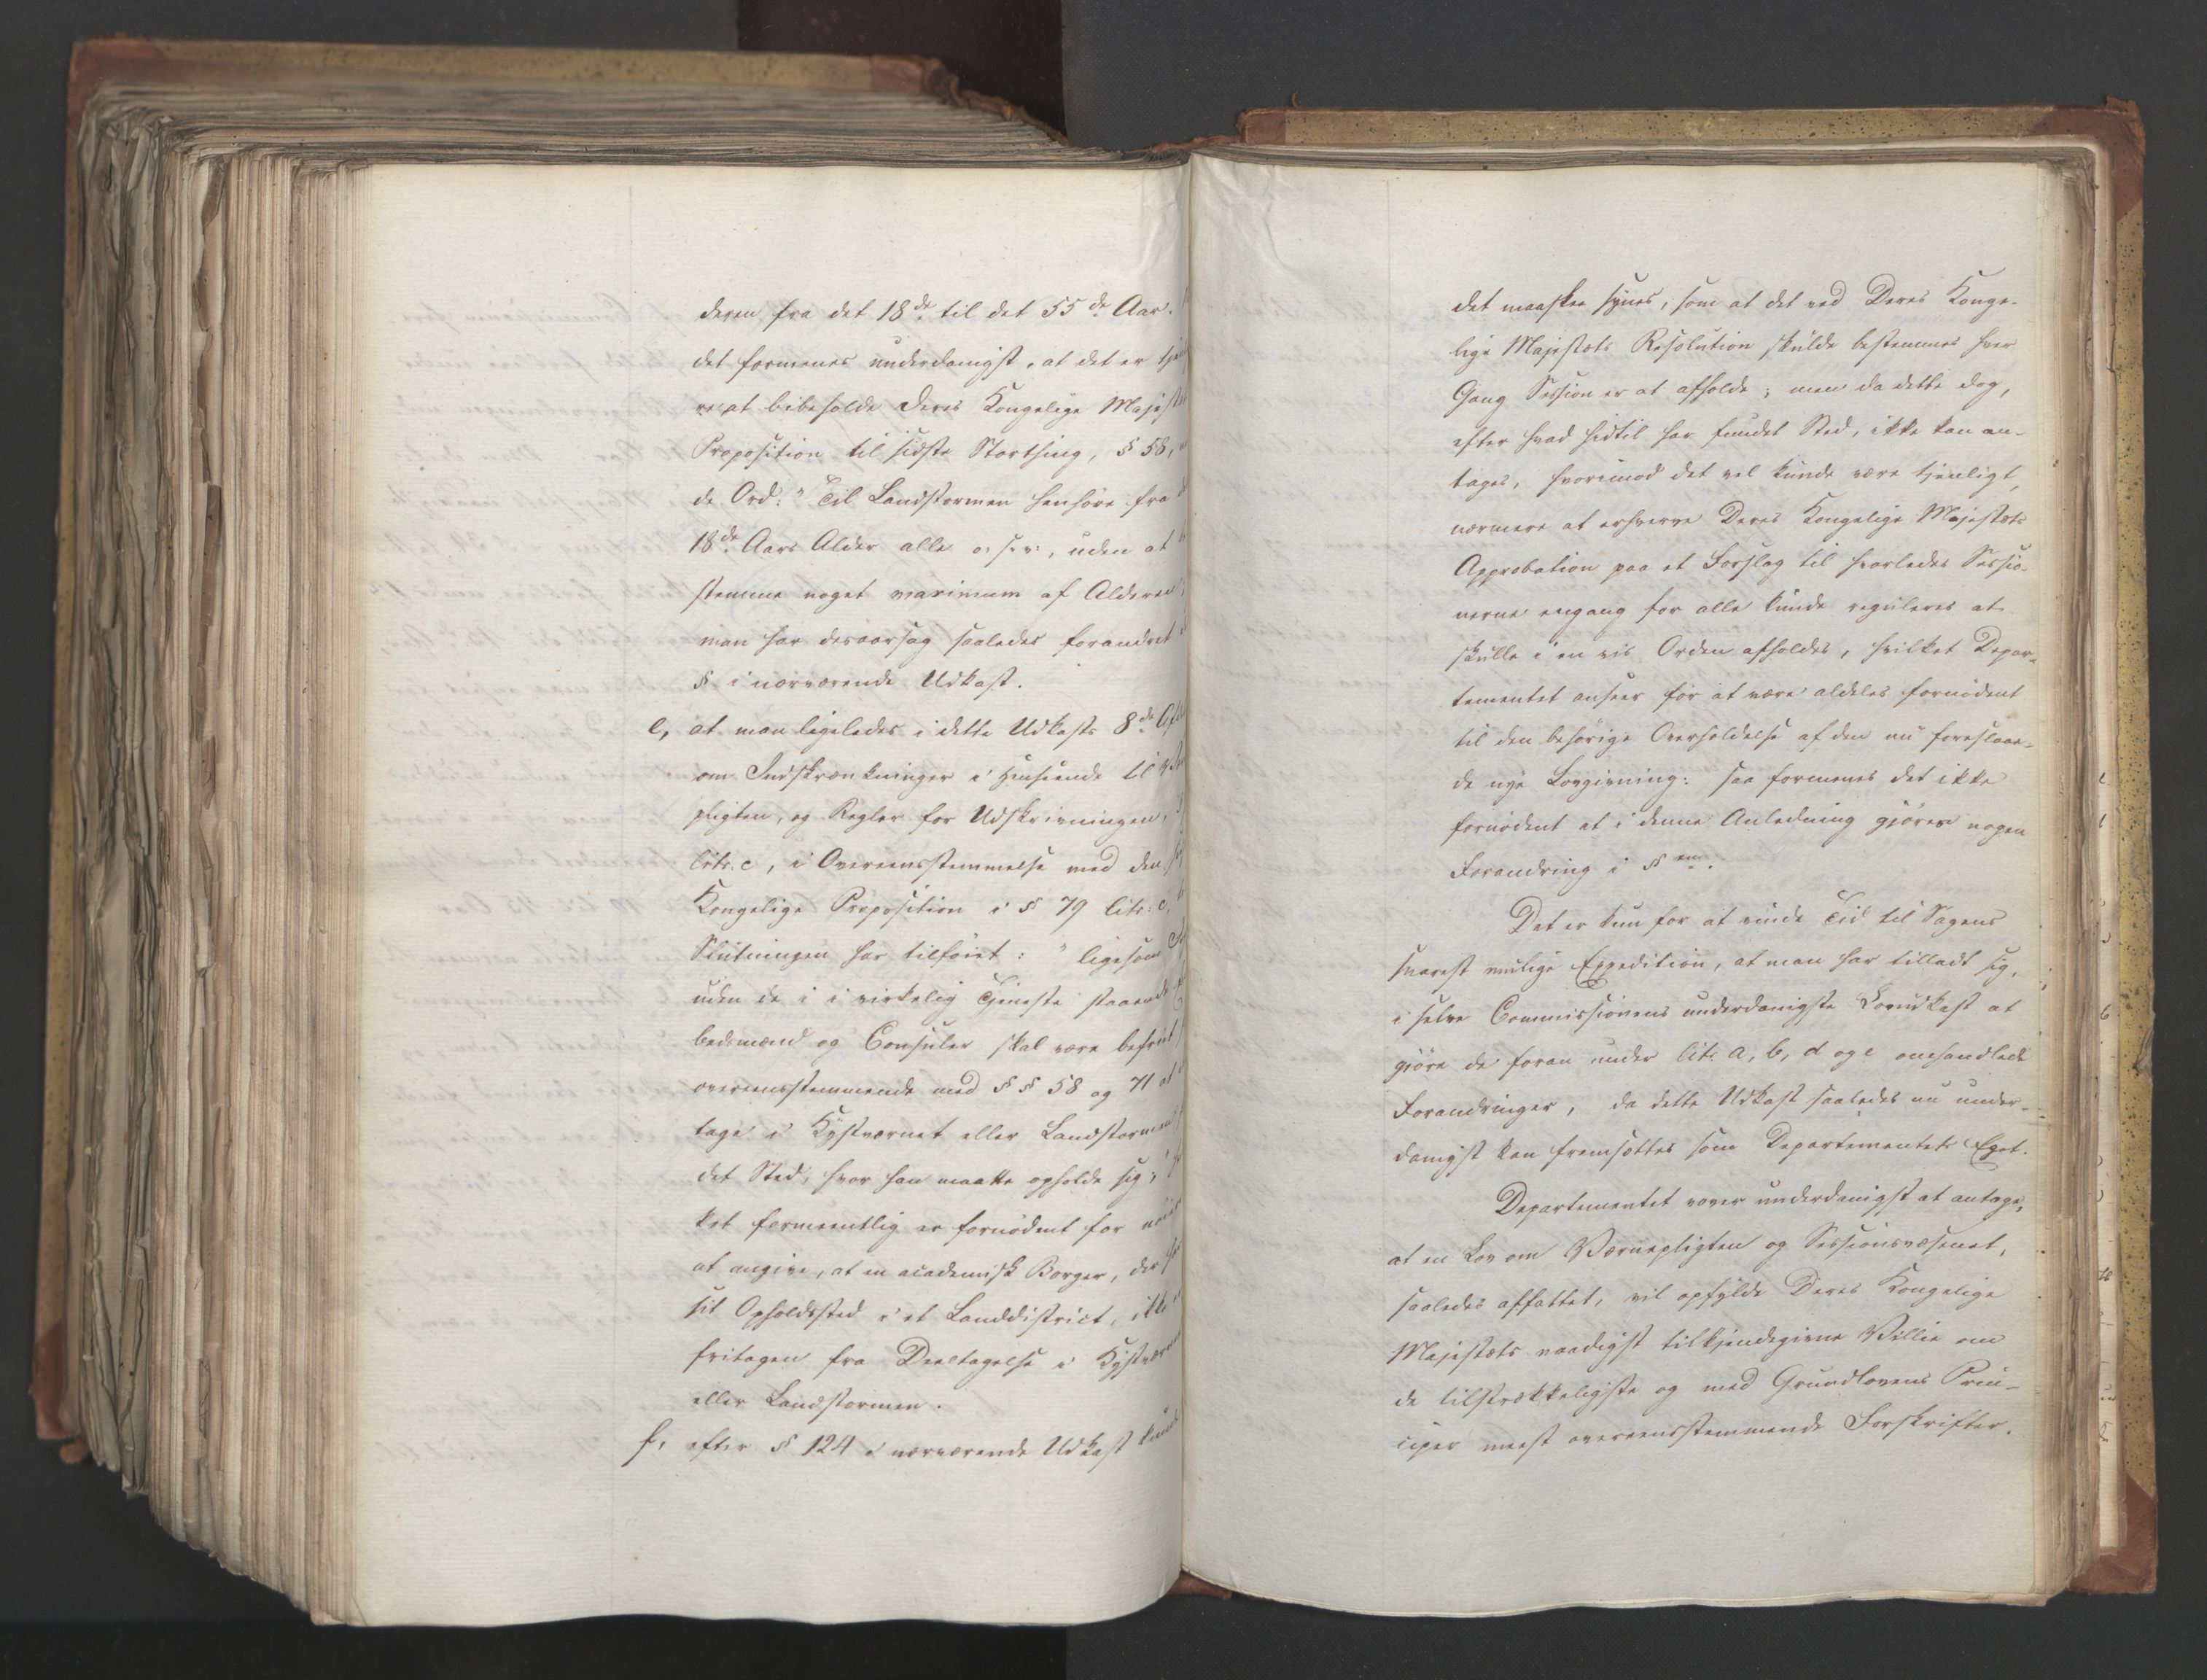 deren fra det 18de til det 55de Aar.
det formenes underdanigst, at det er
at bibeholde Deres Kongelige
Proposition til sidste Storthing, § 58,
de Ord: "Til Landstormen henhøre fra
18de Aars Alder alle o. s. v., uden at
stemme noget maximum af Alderen,
man har desaarsag saaledes forandret
§ i nærværende Udkast.
e, at man ligeledes i dette Udkasts 8de
om Indskrænkninger i Henseende til
pligten, og Regler for Udskrivningen,
litr. c, i Overeensstemmelse med den
Kongelige Proposition i § 79 litr. c,
Slutningen har tilføiet: "ligesom
uden de i virkelig Tjeneste staaende
bedsmænd og Consuler skal være befriet
overeensstemmende med §§ 58 og 71 at
tage i Kystværnet eller Landstormen
det Sted, hvor han maatte opholde sig";
ket formeentlig er fornødent for
at angive, at en academisk Borger, der
sit Opholdssted i et Landdistrict, ikke
fritagen fra Deeltagelse i Kystværnet
eller Landstormen.
f, efter § 124 i nærværende Udkast kunde
det maaskee synes, som at det ved Deres Konge-
lige Majestæts Resolution skulde bestemmes hver
Gang Session er at afholde; men da dette dog,
efter hvad hidtil har fundet Sted, ikke kan an-
tages, hvorimod det vel kunde være tjenligt,
nærmere at erhverve Deres Kongelige Majestæts
Approbation paa et Forslag til hvorledes Sessio-
nerne engang for alle kunde reguleres at
skulle i en vis Orden afholdes, hvilket Depar-
tementet anseer for at være aldeles fornødent
til den behørige Overholdelse af den nu foreslaae-
de nye Lovgivning: saa formenes det ikke
fornødent at i denne Anledning gjøres nogen
Forandring i §en.
Det er kun for at vinde Tid til Sagens
snarest mulige Expedition, at man har tilladt sig,
i selve Commissionens underdanigste Lovudkast at
gjøre de foran under litr. a, b, d og e omhandlede
Forandringer, da dette Udkast saaledes nu under-
danigst kan fremsættes som Departementets Eget.
Departementet vover underdanigst at antage,
at en Lov om Værnepligten og Sessionsvæsenet,
saaledes affattet, vil opfylde Deres Kongelige
Majestæts naadigst tilkjendegivne Villie om
de tilstrækkeligste og med Grundlovens Prin-
ciper meest overeensstemmende Forskrifter.